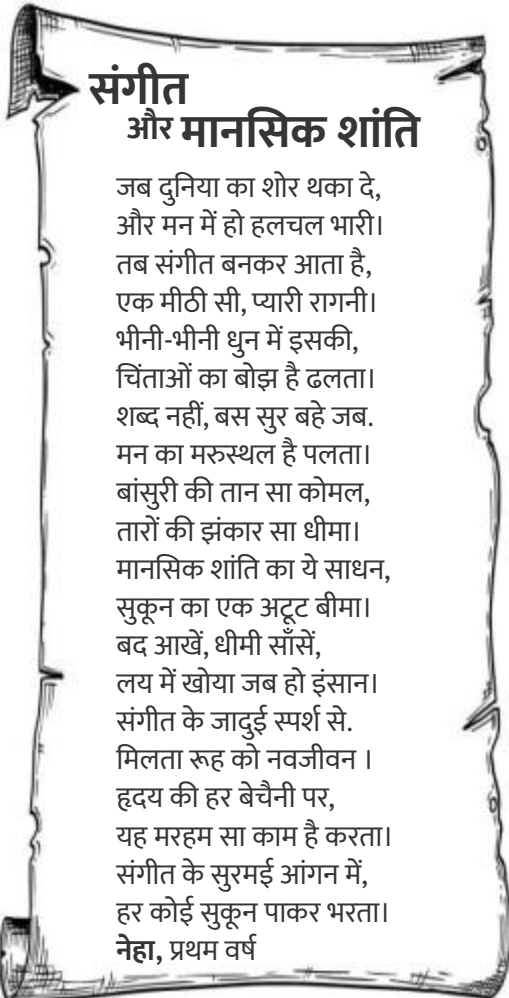 संगीत
और मानसिक शांति
जब दुनिया का शोर थका दे,
और मन में हो हलचल भारी।
तब संगीत बनकर आता है,
एक मीठी सी, प्यारी रागनी।
भीनी-भीनी धुन में इसकी,
चिंताओं का बोझ है ढलता।
शब्द नहीं, बस सुर बहे जब.
मन का मरुस्थल है पलता।
बांसुरी की तान सा कोमल,
तारों की झंकार सा धीमा।
मानसिक शांति का ये साधन,
सुकून का एक अटूट बीमा।
बद आखें, धीमी साँसें,
लय में खोया जब हो इंसान।
संगीत के जादुई स्पर्श से.
मिलता रूह को नवजीवन ।
हृदय की हर बेचैनी पर,
यह मरहम सा काम है करता।
संगीत के सुरमई आंगन में,
हर कोई सुकून पाकर भरता।
नेहा, प्रथम वर्ष